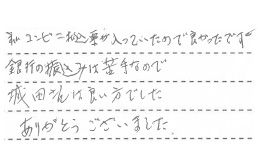 コンビニ払込票が入っていたので良かったです
銀行の振込みは苦手なので
成田さんは良い方でした
ありがとうございました。